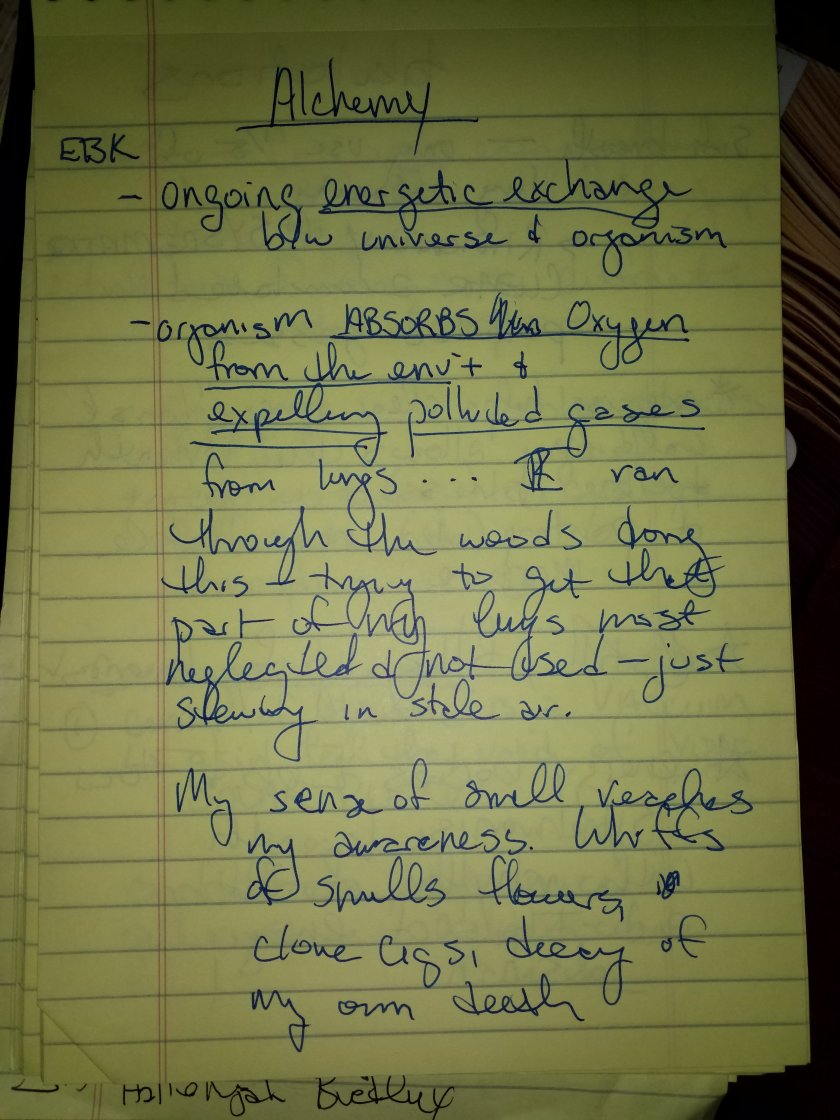 Alchemy
EBK
- ongoing energetic exchange
b/w universe & organism
- organism ABSORBS Oxygen
from the env't &
expelling polluted gases
from lungs .... I ran
through the woods doing
this - trying to get that
part of my lungs most
neglected & not used - just
stewing in stale air.
My sense of smell reaches
my awareness. Whiffs
of smells flowers,
clove cigs, decay of
my own death